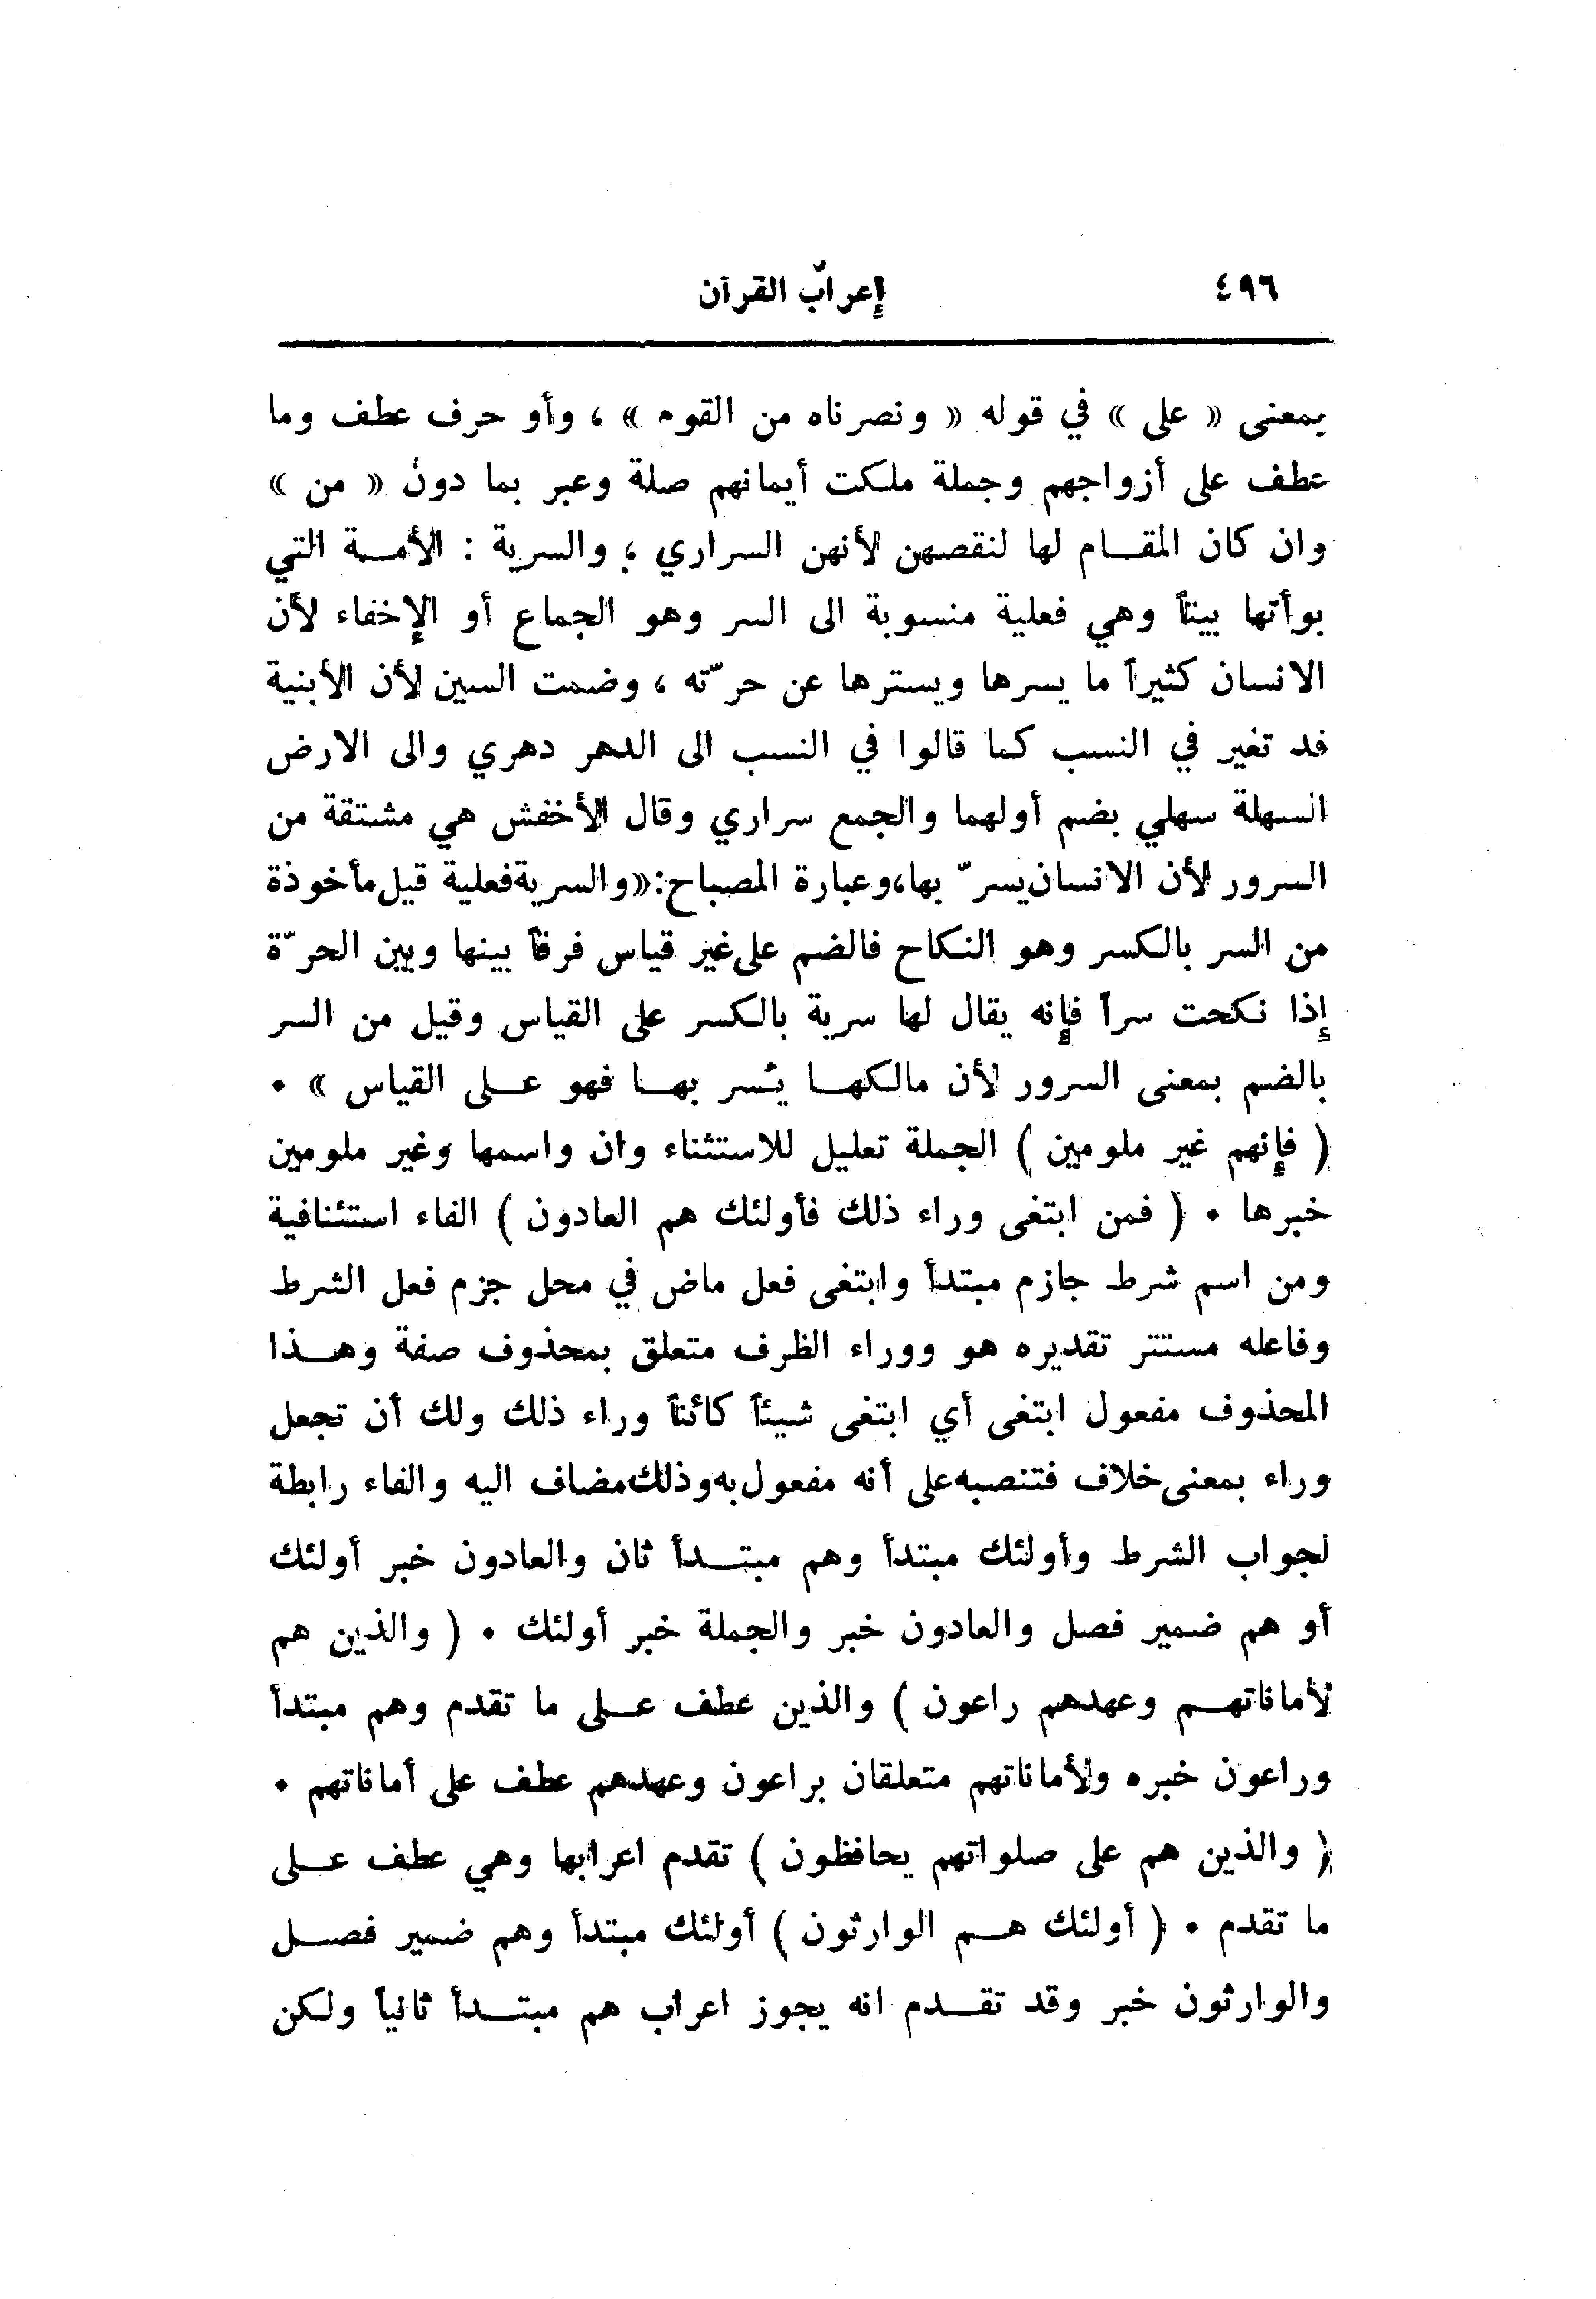 ٤٩٦ إعراب القرآن
بمعنى « على » في قوله « ونصرناه من القوم » ، وأو حرف عطف وما
عطف على أزواجهم وجملة ملكت أيمانهم صلة وعبر بما دون « من »
وان كان المقام لها لنقصهن لأنهن السراري ، والسرية : الأمة التي
بوأتها بيتاً وهي فعلية منسوبة الى السر وهو الجماع أو الإخفاء لأن
الانسان كثيراً ما يسرها ويسترها عن حرّته ، وضمت السين لأن الأبنية
قد تغير في النسب كما قالوا في النسب الى الدهر دهري والى الارض
السهلة سهلي بضم أولهما والجمع سراري وقال الأخفش هي مشتقة من
السرور لأن الانسان يسرّ بها، وعبارة المصباح: «والسرية فعلية قيل مأخوذة
من السر بالكسر وهو النكاح فالضم على غير قياس فرقاً بينها وبين الحرّة
إذا نكحت سراً فإنه يقال لها سرية بالكسر على القياس وقيل من السر
بالضم بمعنى السرور لأن مالكها يُسر بها فهو على القياس » •
( فإنهم غير ملومين ) الجملة تعليل للاستثناء وان واسمها وغير ملومين
خبرها • ( فمن ابتغى وراء ذلك فأولئك هم العادون ) الفاء استئنافية
ومن اسم شرط جازم مبتدأ وابتغى فعل ماض في محل جزم فعل الشرط
وفاعله مستتر تقديره هو ووراء الظرف متعلق بمحذوف صفة وهذا
المحذوف مفعول ابتغى أي ابتغى شيئاً كائناً وراء ذلك ولك أن تجعل
وراء بمعنى خلاف فتنصبه على أنه مفعول به وذلك مضاف اليه والفاء رابطة
لجواب الشرط وأولئك مبتدأ وهم مبتدأ ثان والعادون خبر أولئك
أو هم ضمير فصل والعادون خبر والجملة خبر أولئك • ( والذين هم
لأماناتهم وعهدهم راعون ) والذين عطف على ما تقدم وهم مبتدأ
وراعون خبره ولأماناتهم متعلقان براعون وعهدهم عطف على أماناتهم •
( والذين هم على صلواتهم يحافظون ) تقدم اعرابها وهي عطف على
ما تقدم • ( أولئك هم الوارثون ) أولئك مبتدأ وهم ضمير فصل
والوارثون خبر وقد تقدم انه يجوز اعراب هم مبتدأ ثانياً ولكن